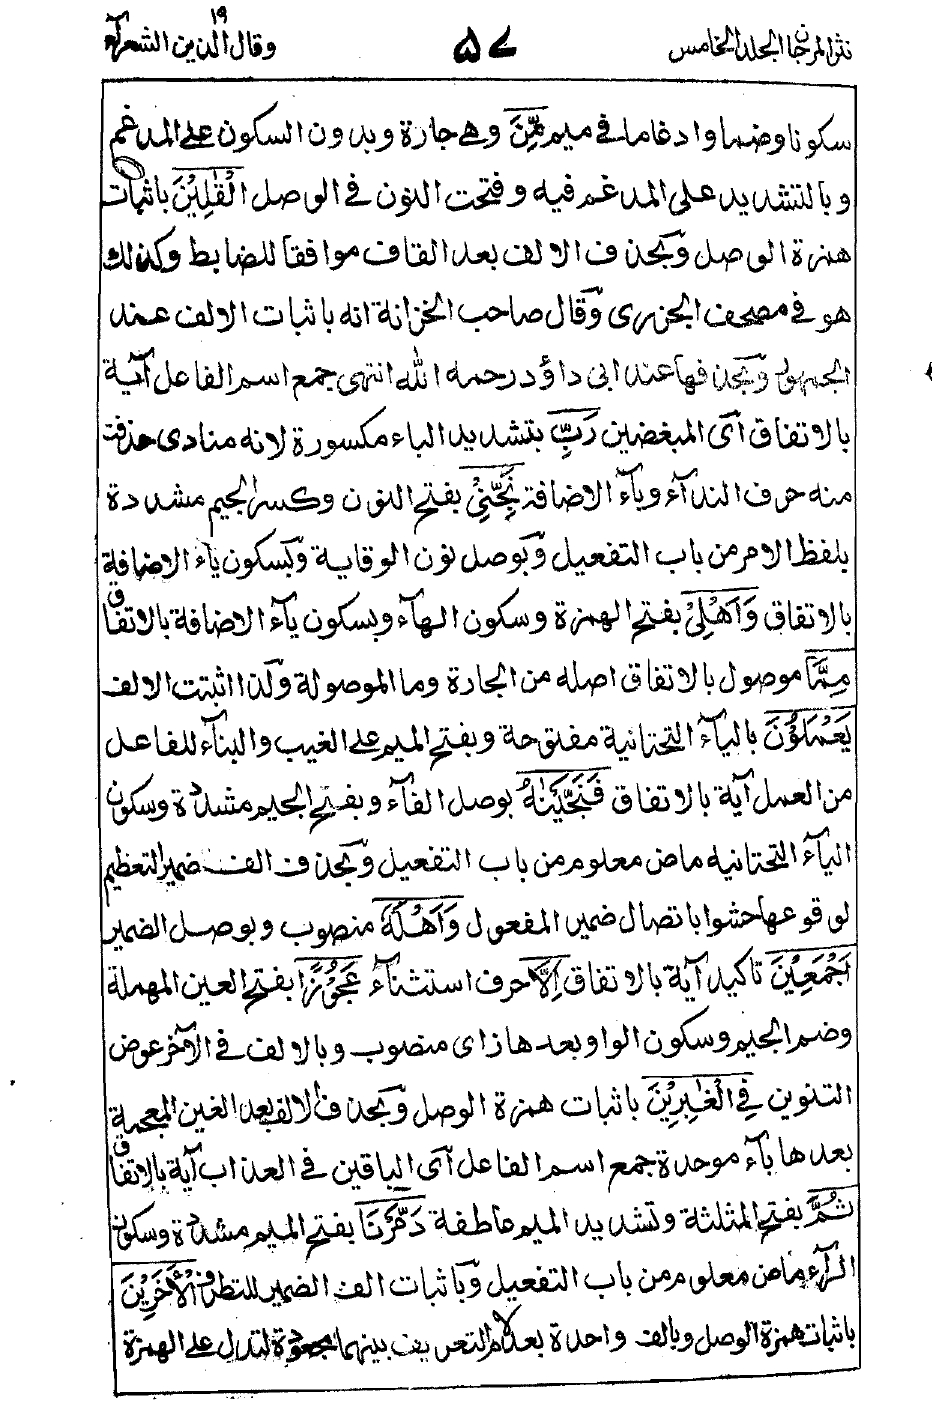 نثر المرجان الجلد الخامس ۵۷ وقال الذين ۱۹ الشعرآء
سكونا وضما وادغاما في ميم مِّنَ وهي جارة وبدون السكون على المدغم
وبالتشديد على المدغم فيه وفتحت النون في الوصل الْقَالِيْنَ باثبات
همزة الوصل وبحذف الالف بعد القاف موافقا للضابط وكذلك
هو في مصحف الجزرى وقال صاحب الخزانة انه باثبات الالف عند
الجمهور وبحذفها عند ابى داؤد رحمه الله انتهى جمع اسم الفاعل آية
بالاتفاق آى المبغضين رَبِّ بتشديد الباء مكسورة لانه منادى حذفت
منه حرف الندآء ويآء الاضافة نَجِّنِيْ بفتح النون وكسر الجيم مشددة
بلفظ الامر من باب التفعيل وبوصل نون الوقاية وبسكون ياء الاضافة
بالاتفاق وَاَهْلِيْ بفتح الهمزة وسكون الهآء وبسكون يآء الاضافة بالاتفاق
مِمَّا موصول بالاتفاق اصله من الجارة وما الموصولة ولذا اثبتت الالف
يَعْمَلُوْنَ باليآء التحتانية مفتوحة وبفتح الميم على الغيب والبنآء للفاعل
من العمل آية بالاتفاق فَنَجَّيْنٰهُ بوصل الفآء وبفتح الجيم مشددة وسكون
اليآء التحتانية ماض معلوم من باب التفعيل وبحذف الف ضمير التعظيم
لوقوعها حشوا باتصال ضمير المفعول وَاَهْلَهٗ منصوب وبوصل الضمير
اَجْمَعِيْنَ تاكيد آية بالاتفاق اِلَّا حرف استثنآء عَجُوْزًا بفتح العين المهملة
وضم الجيم وسكون الواو بعدها زاى منصوب وبالالف في الآخر عوض
التنوين فِي الْغٰبِرِيْنَ باثبات همزة الوصل وبحذف الالف بعد الغين المعجمة
بعدها بآء موحدة جمع اسم الفاعل آى الباقين في العذاب آية بالاتفاق
ثُمَّ بفتح المثلثة وتشديد الميم عاطفة دَمَّرْنَا بفتح الميم مشددة وسكون
الرآء ماض معلوم من باب التفعيل وباثبات الف الضمير للتطرف الْاٰخَرِيْنَ
باثبات همزة الوصل وبالف واحدة بعد لام التعريف بينهما مجعودة لتدل على الهمزة